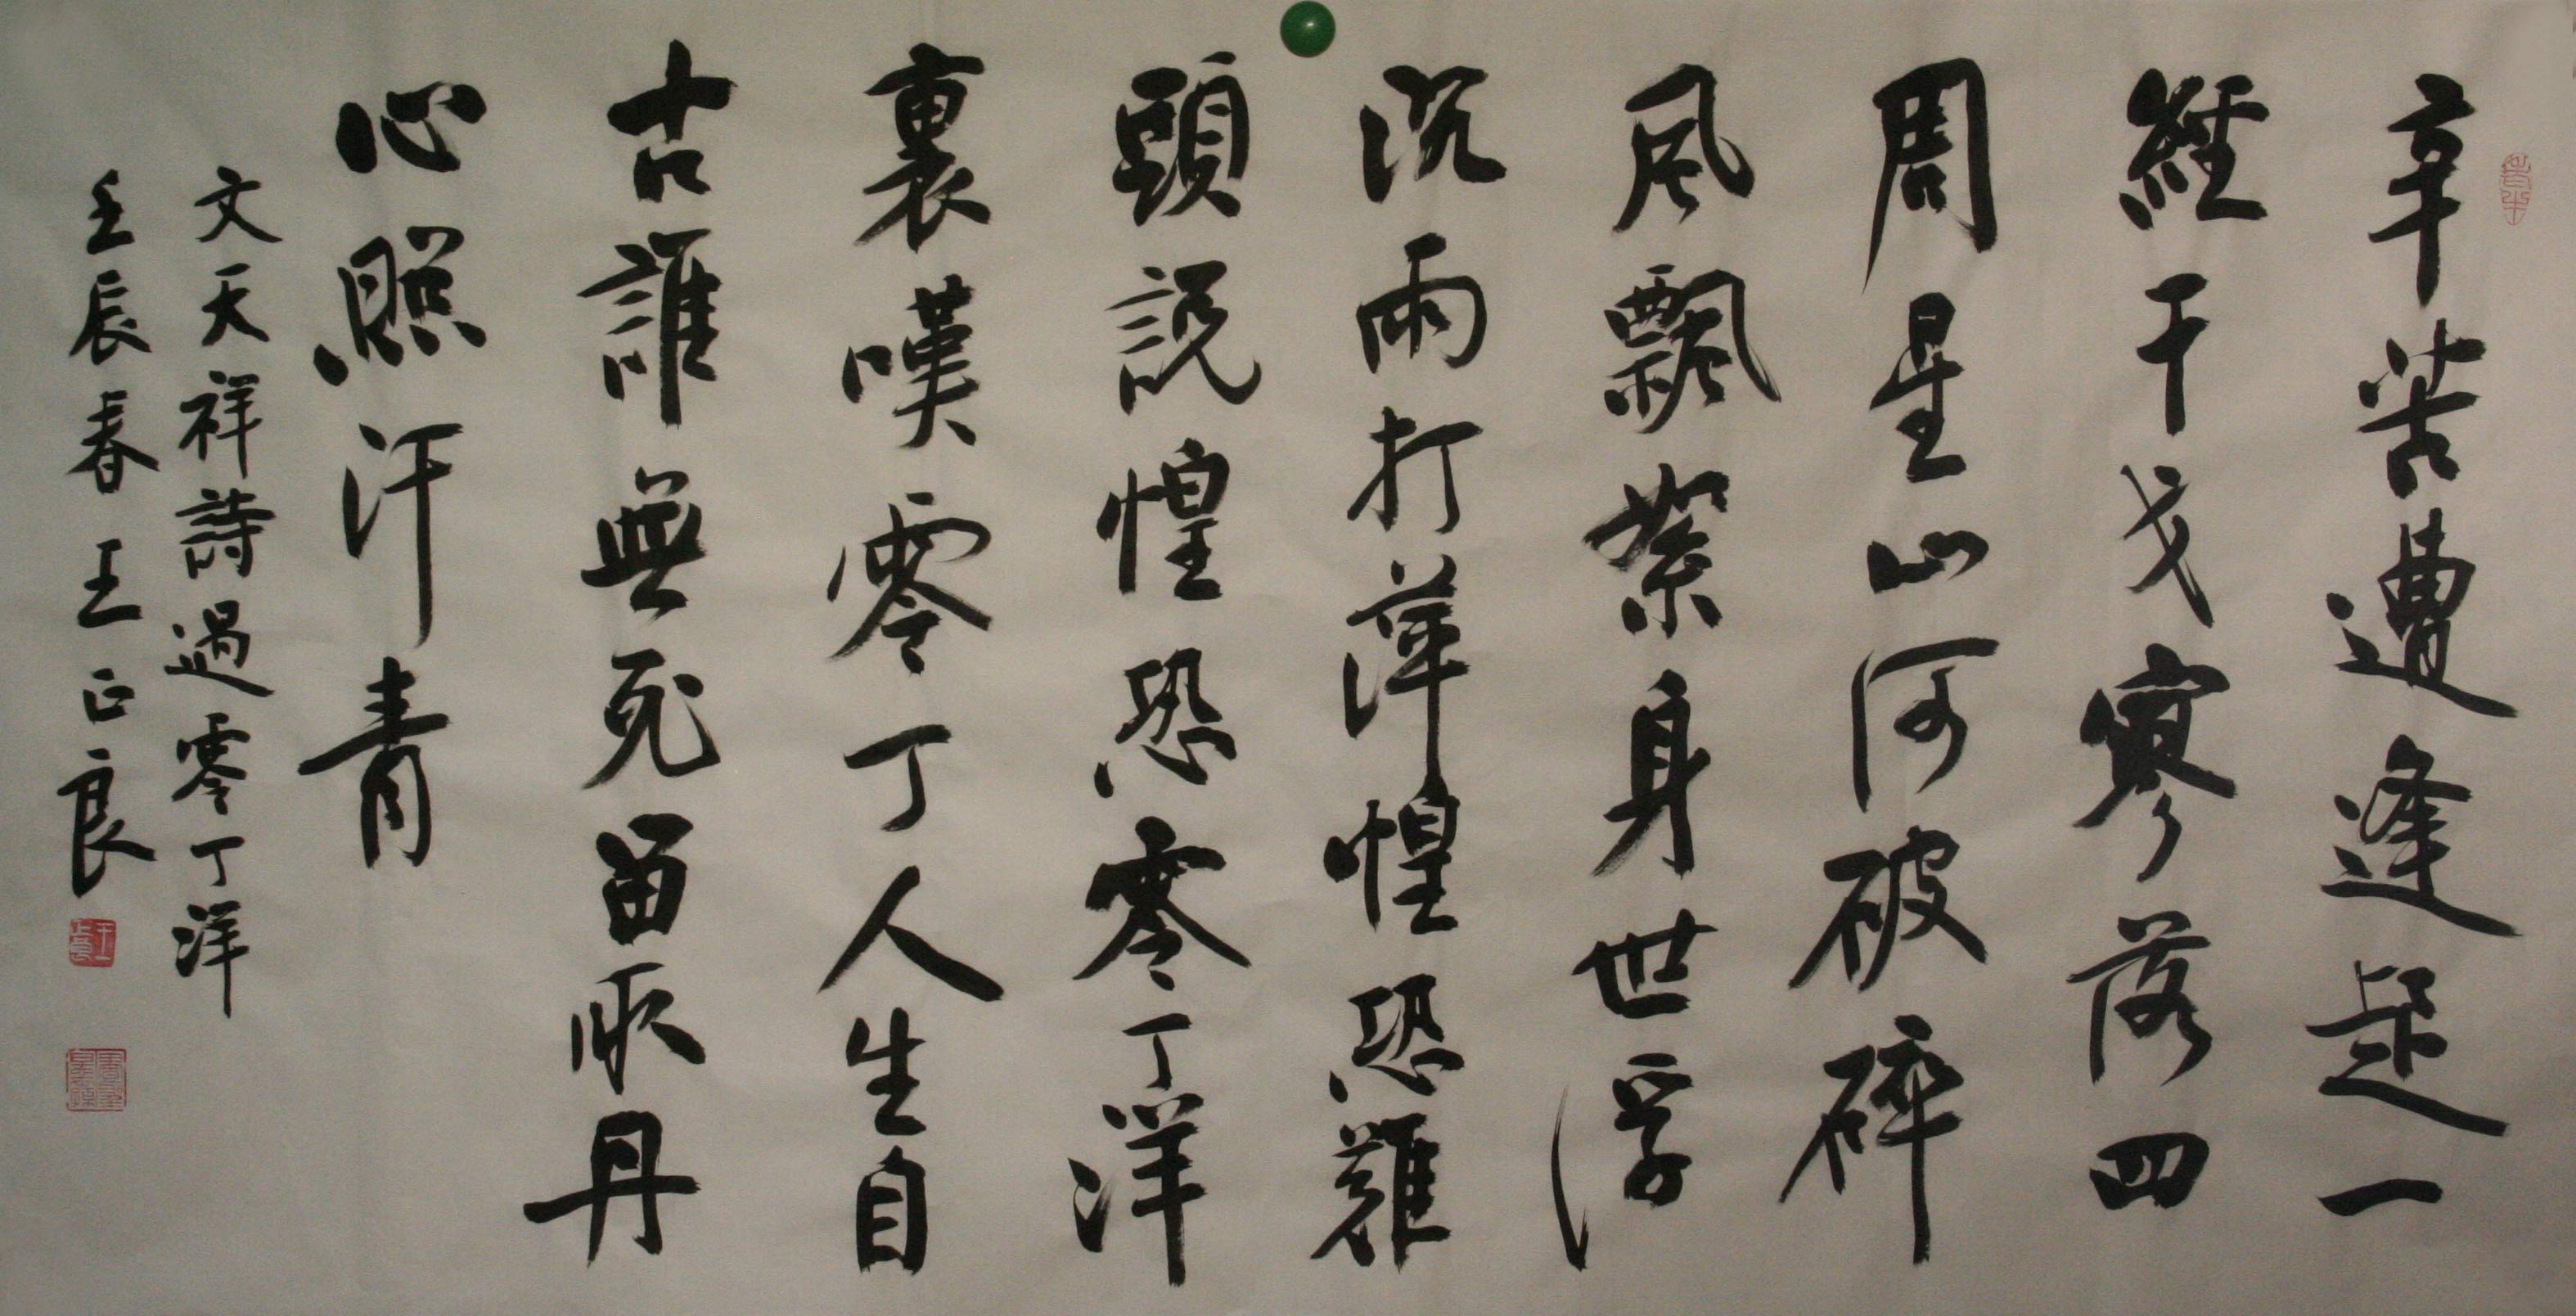 辛苦遭逢起一
經干戈寥落四
周星山河破碎
風飄絮身世浮
沉雨打萍惶恐難
頭説惶恐零丁洋
裏嘆零丁人生自
古誰無死留取丹
心照汗青
文天祥詩過零丁洋
壬辰春王正良